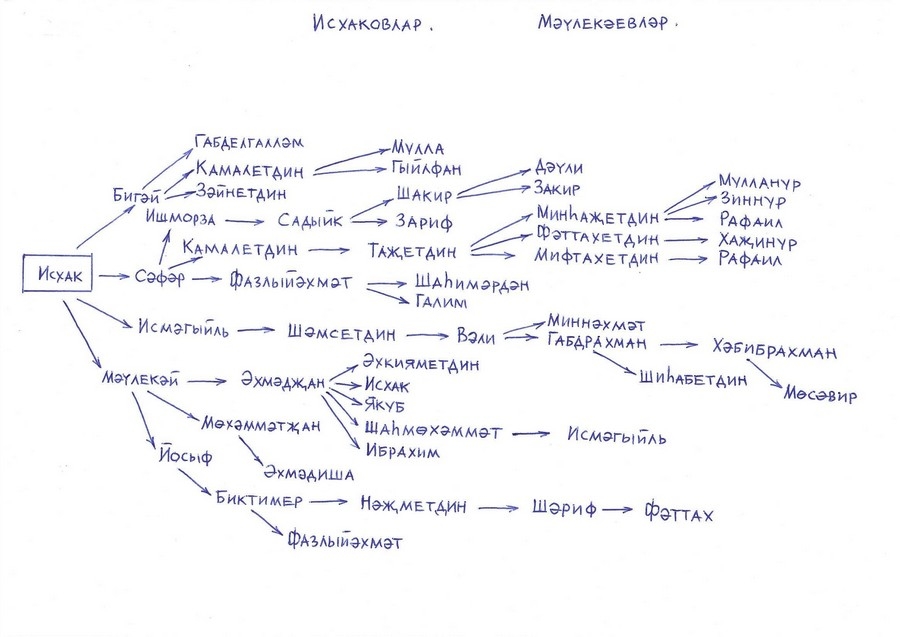 Исхаковлар. Мәүлекәевләр.
Габделгалләм
Мулла
Камалетдин
Гыйлфан
Дәүли
Бигәй
Зәйнетдин
Шакир
Закир
Мулланур
Зиннур
Ишморза
Садыйк
Зариф
Минһаҗетдин
Рафаил
Камалетдин
Таҗетдин
Фәттахетдин
Хаҗинур
Мифтахетдин
Рафаил
Исхак
Сәфәр
Фазлыйәхмәт
Шаһимәрдән
Галим
Исмәгыйль
Шәмсетдин
Вәли
Миннәхмәт
Габдрахман
Хәбибрахман
Шиһабетдин
Мөсәвир
Мәүлекәй
Әхмәдҗан
Әхкияметдин
Исхак
Якуб
Шаһмөхәммәт
Исмәгыйль
Ибрахим
Мөхәммәтҗан
Әхмәдиша
Йосыф
Биктимер
Нәҗметдин
Шәриф
Фәттах
Фазлыйәхмәт